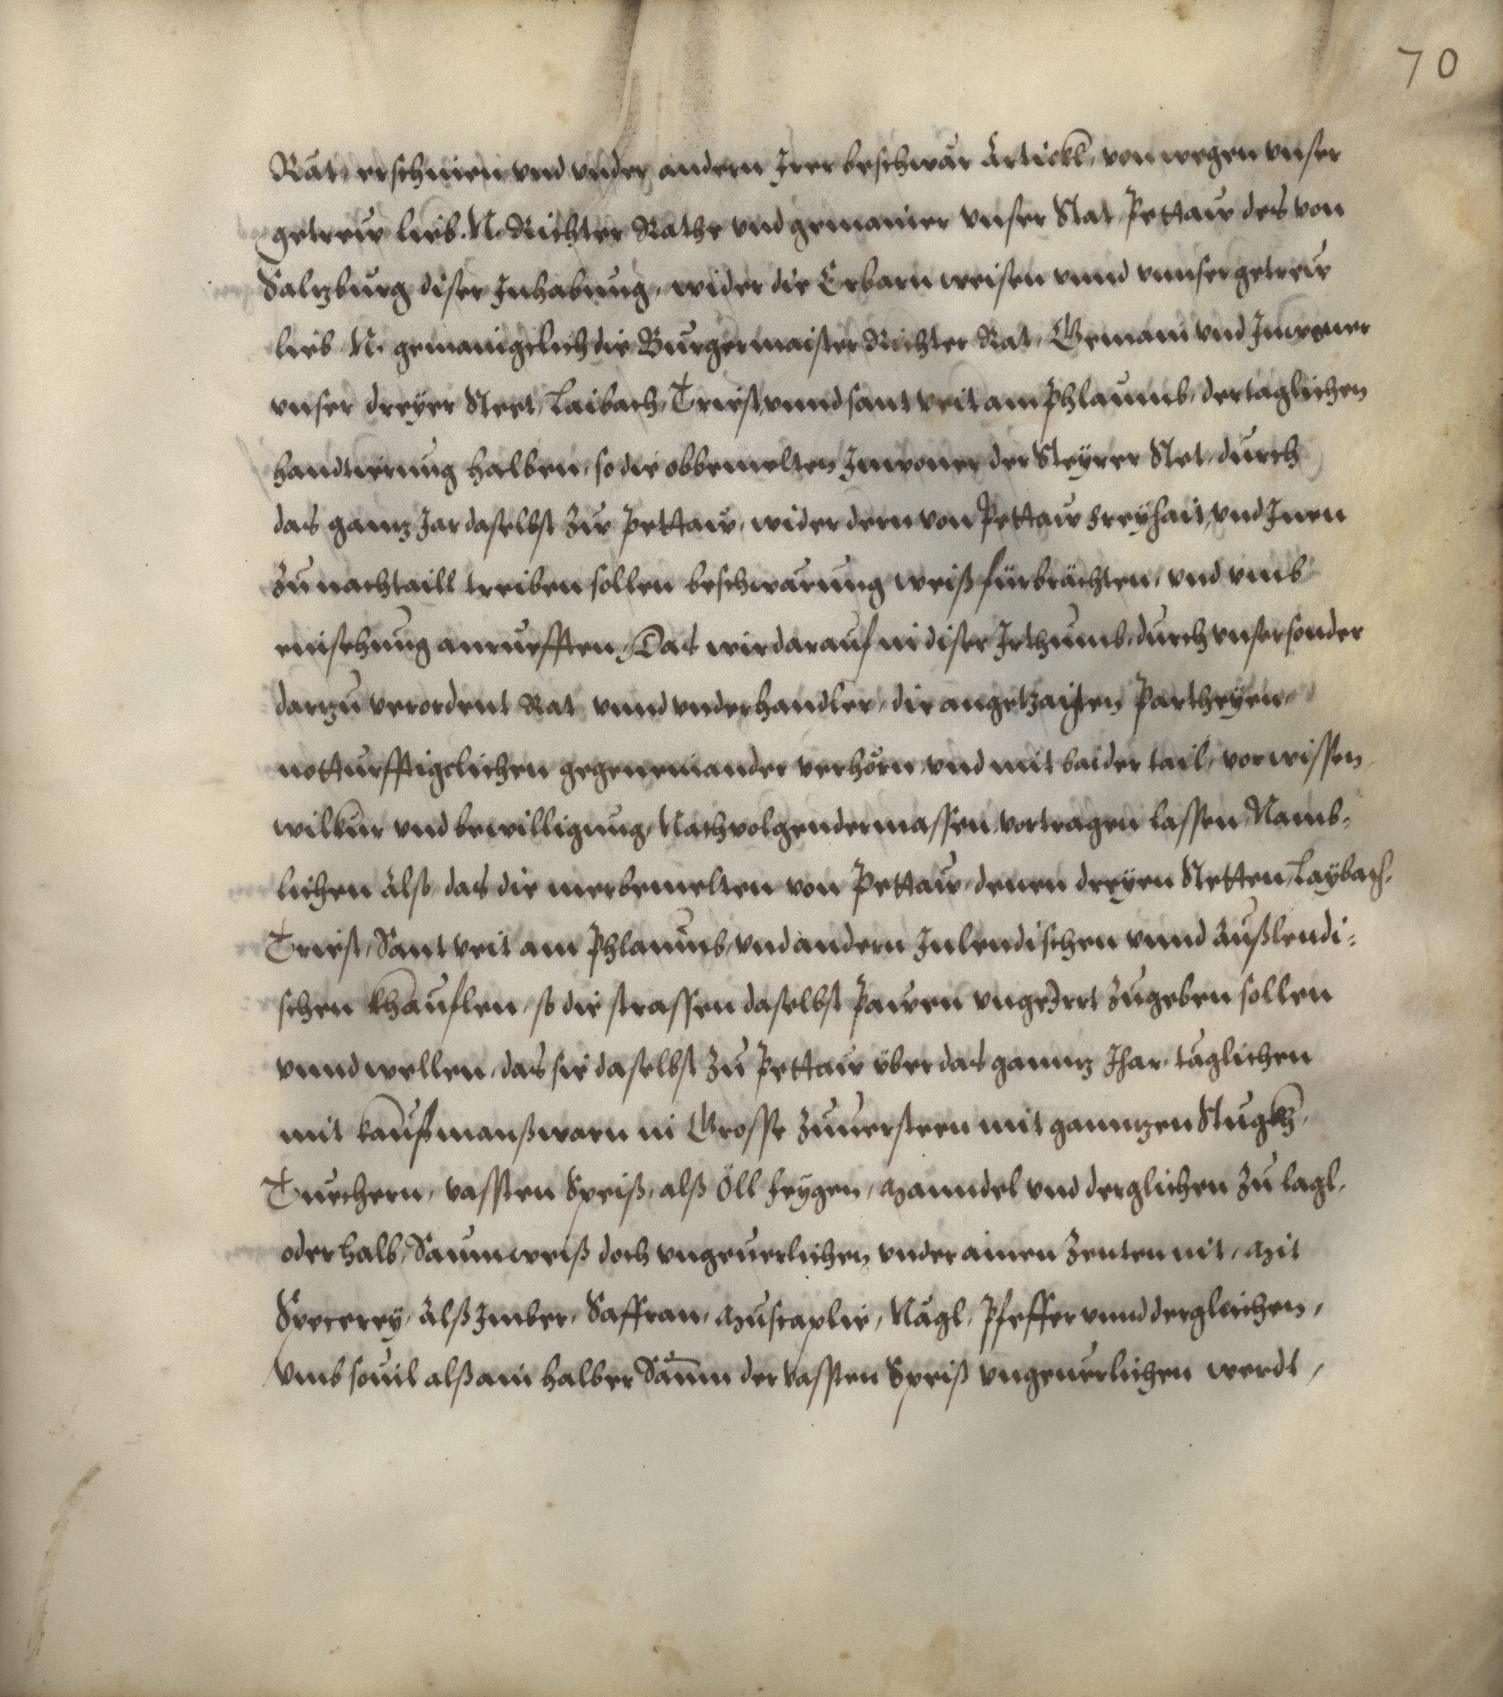 70
Rät, erschinen vnd vnder andern Irer beschwär Artickl, von wegen vnser
getrew lieb. N. Richter Rathe vnd gemainer vnser Stat Pettaw des von
Saltzburg diser Inhabung, wider die Erbarn weisen vnnd vnnser getrew
lieb N. gemainigclich die Burgermaister Richter Rat, Gemain vnd Inwoner
vnser dreyer Steet, Laibach, Triest, vnnd sant Veit am Phlaumb, der taglichen
handtierung halben, so die obbemelten Inwoner der Steyrer Stet, durch
das gantz Jar daselbst zw Pettaw, wider dern von Pettaw Freyhait, vnd Inen
zu nachtaill treiben sollen beschwärung weiß fürbrächten, vnd vmb
einsehung anruefften, Das wir darauf in diser Irthumb, durch vnser sonder
dartzu verordent Rat vnnd vnderhandler, die angetzaigten Partheyen,
notturfftigclichen gegeneinander verhörn, vnd mit baider tail, vorwissen
wilkur vnd bewilligung, Nachuolgendermassen, vertragen lassen, Namb-
lichen Also, das die merbemelten von Pettaw, denen dreyen Stetten, Laybach,
Triest, Sant Veit am Phlaumb, vnd andern Inlendischen vnnd Außlendi-
schen khauflen, so die strassen daselbst Pawen vngeJrrt zugeben sollen
vnnd wellen, das sie daselbst zu Pettaw über das ganntz Jhar, täglichen
mit kaufmanßwarn in Grosse zuuersteen mit ganntzen Stugkh,
Tuechern, vassten Speiß, alß Öll feygen, Manndel vnd derglichen zu lagl,
oder halb, Saumweiß doch vngeuerlichen vnder ainen Zenten nit, Mit
Specerey, Alß Imber, Saffran, Muscaplie, Nägl, Pfeffer vnnd dergleichen,
Vmb souil alß ain halber Saum der vassten Speiß vngeuerlichen werdt,